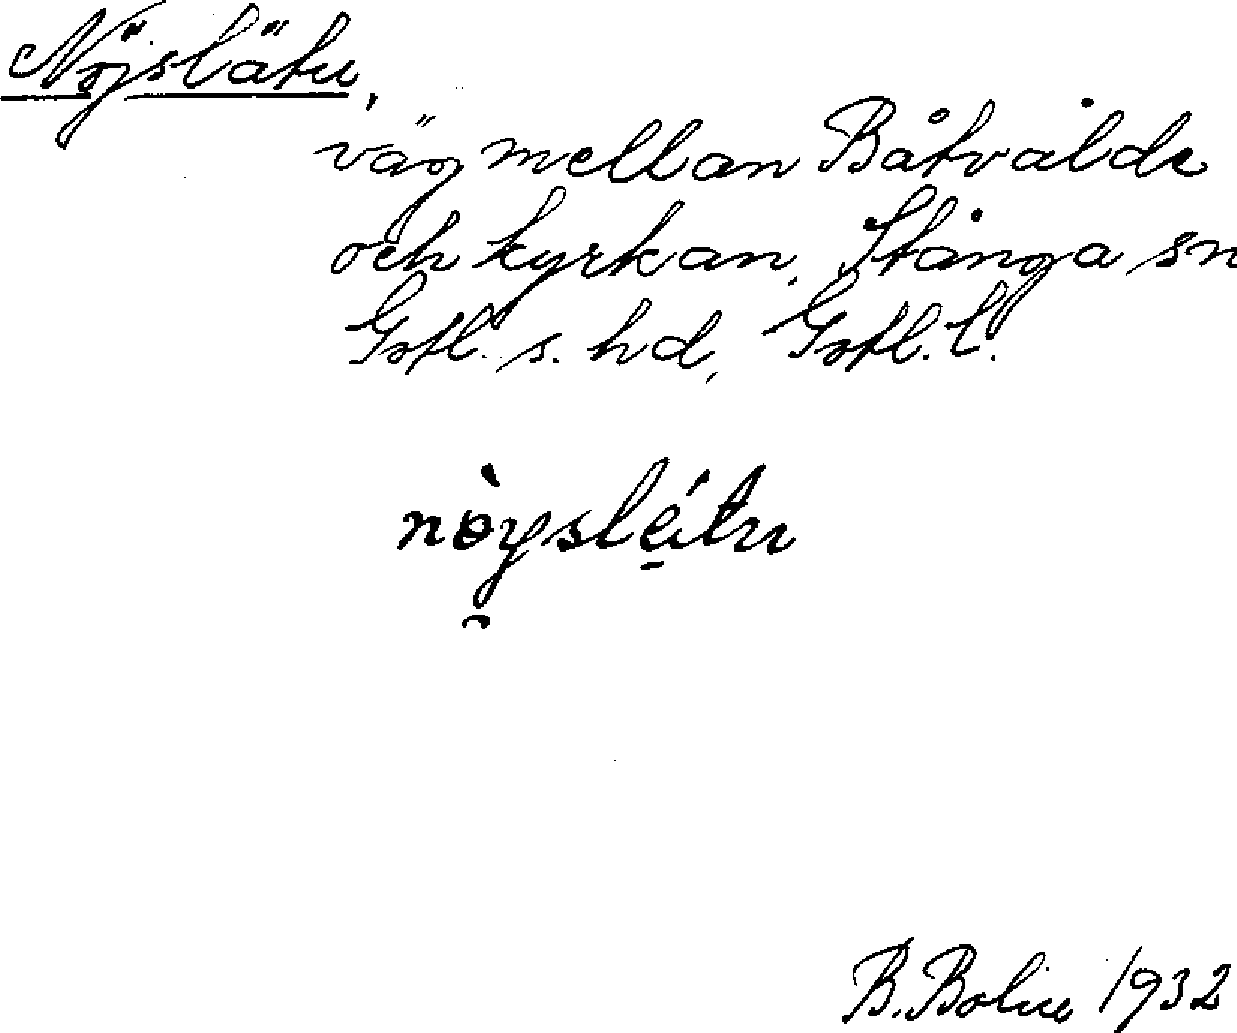 Nöjslätu,
väg mellan Båtvålde
och kyrkan, Stånga sn
Gotl. s. hd, Gotl. l.
nòyslétu
B. Bolin 1932